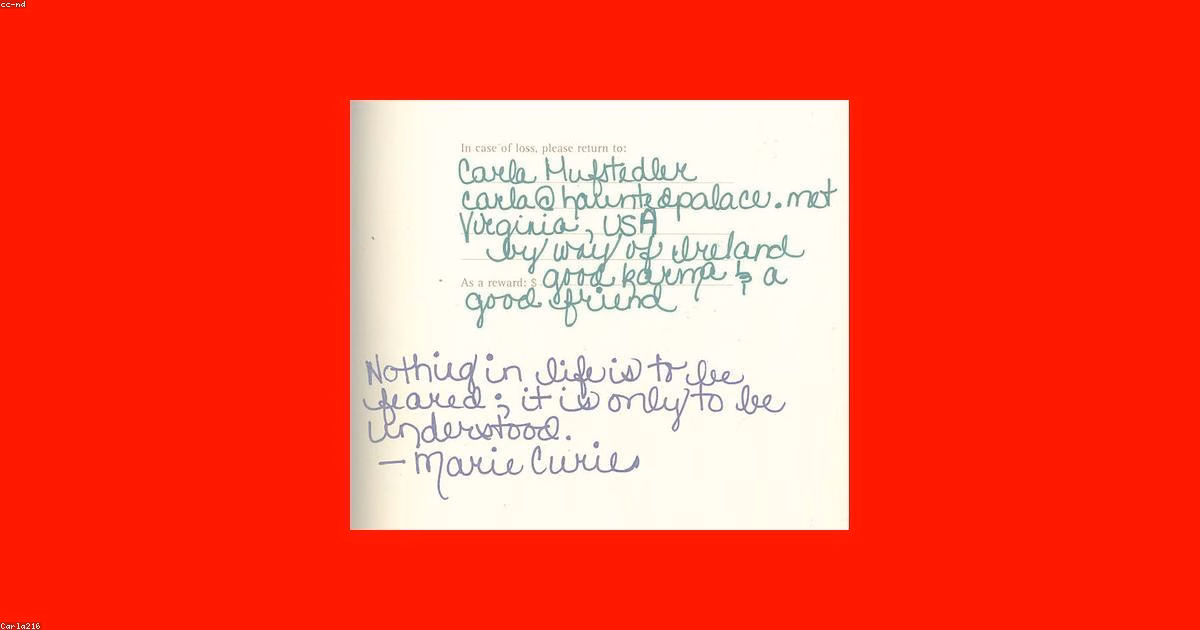 cc-nd
In case of loss, please return to:
Carla Mufstedler
carla@hauntedpalace.net
Virginia, USA
by way of Ireland
As a reward: $ good karma & a
good friend
Nothing in life is to be
feared; it is only to be
understood.
— Marie Curie
Carla216